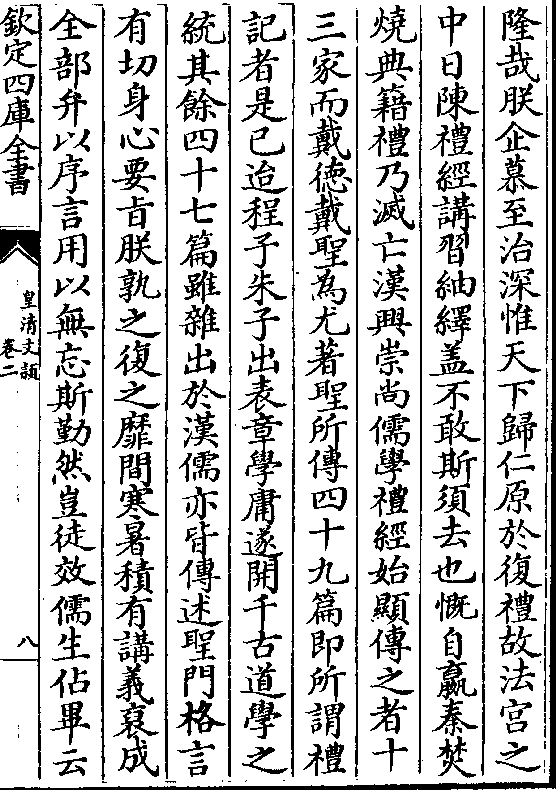 隆哉朕企慕至治深惟天下歸仁原於復禮故法宫之
中日陳禮經講習紬繹盖不敢斯須去也慨自嬴秦焚
燒典籍禮乃滅亡漢興崇尚儒學禮經始顯傳之者十
三家而戴徳戴聖為尤著聖所傳四十九篇即所謂禮
記者是已迨程子朱子出表章學庸遂開千古道學之
統其餘四十七篇雖雜出於漢儒亦皆傳述聖門格言
有切身心要㫖朕孰之復之靡間寒暑積有講義裒成
全部弁以序言用以無忘斯勤然豈徒效儒生佔畢云
欽定四庫全書
皇清文頴
卷二
八